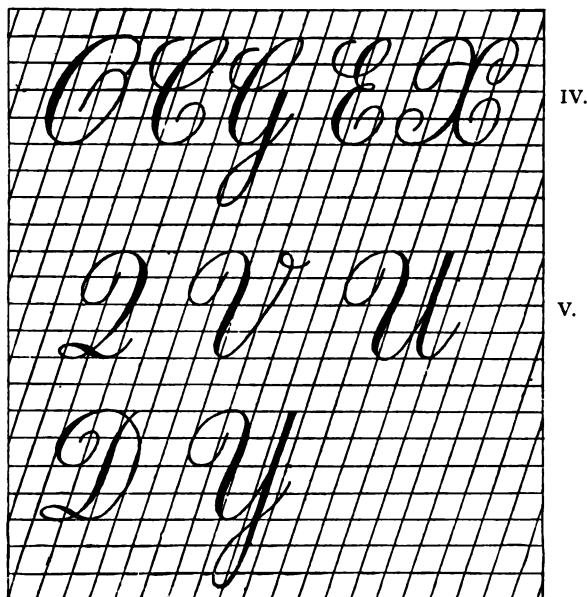 O C G E X IV.
Q V U V.
D Y